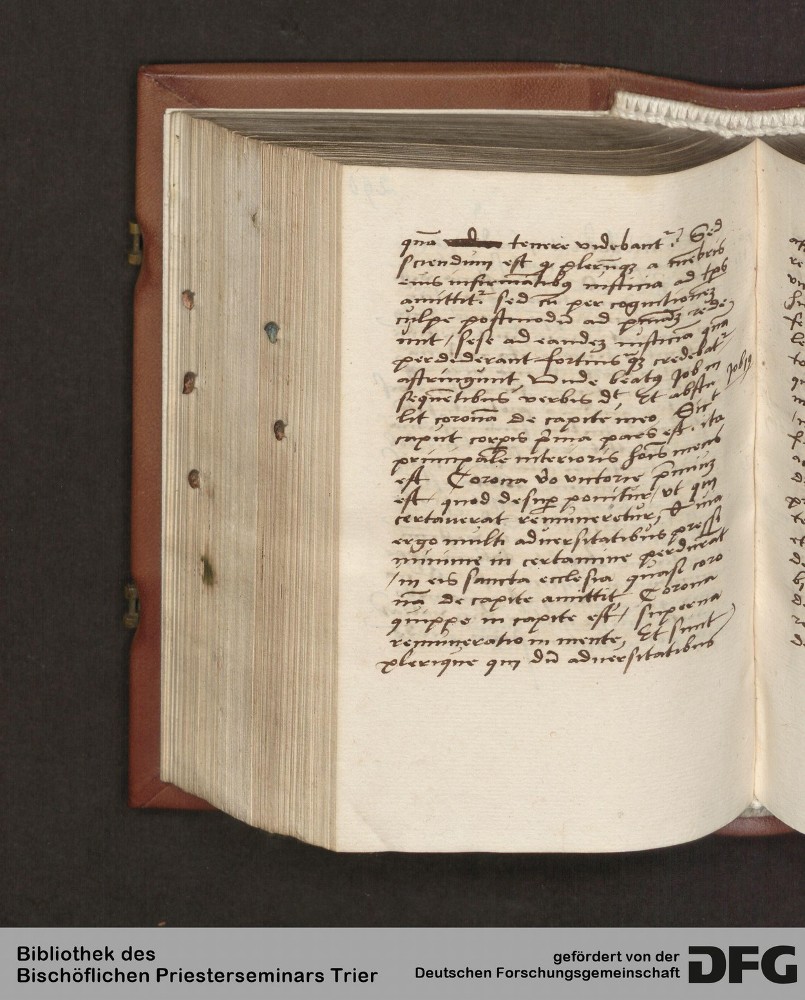 quā tenere videbant᷑? Sed
sciendum est q̄ plerūq; a mēbris
eius infirmātibꝰ iusticia ad tp̄s
amittit᷑. Sed cū per cognitionem
culpe postmodū ad redeūt
/ sese ad eandez iusticiā quā
perdiderant fortius q̄ credebat᷑
astringunt, Unde beatꝰ Job in
sequētibus verbis dt̄, Et abstu Job 19
lit coronā de capite meo. Sic
caput corpis p̄ma pars est, ita
principale interioris hoīs mens
est. Corona v̄o victorie p̄mium
est quod desup̄ ponitur, ut qui
certaverat remuneretur, Quia
ergo multi adversitatibus pressi
minime in certamine perdurāt
/ in eis sancta ecclesia quasi coro
nā de capite amittit. Corona
quippe in capite est / superna
remuneratio in mente, Et sunt
plerique qui dū adversitatibus
Bibliothek des
Bischöflichen Priesterseminars Trier
gefördert von der
Deutschen Forschungsgemeinschaft
DFG